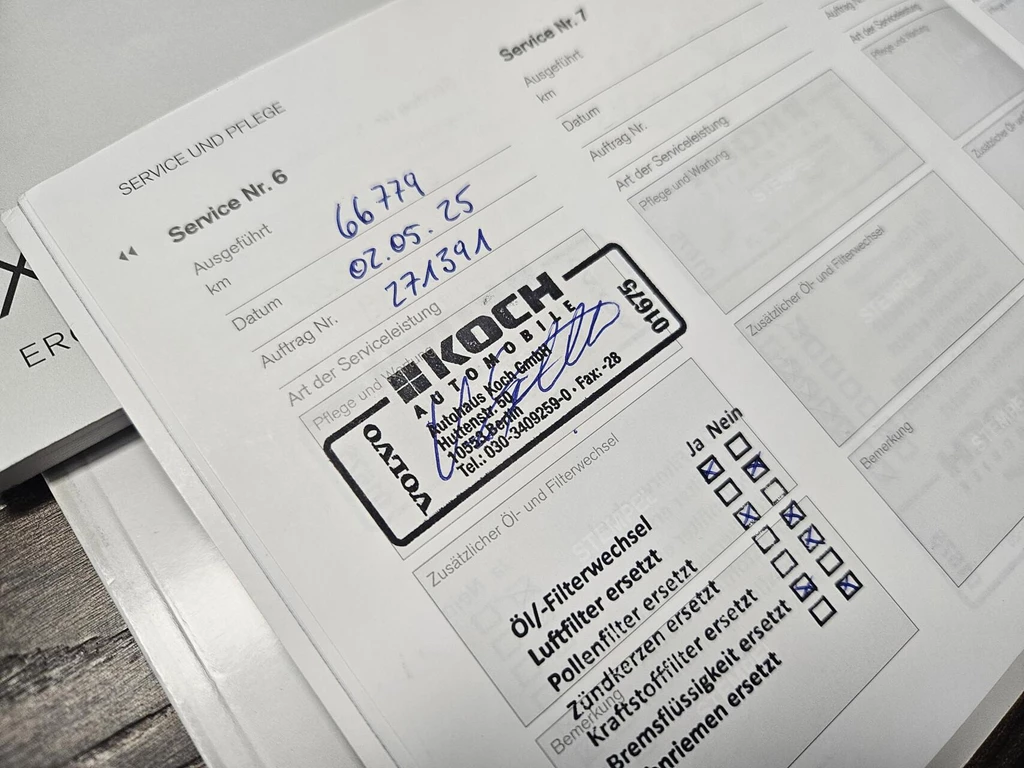 SERVICE UND PFLEGE
Service Nr. 6
Ausgeführt
km 66779
Datum 02.05.25
Auftrag Nr. 271391
Art der Serviceleistung
Pflege und Wartung
VOLVO
KOCH
AUTOMOBILE
Autohaus Koch GmbH
Huttenstr. 50
10553 Berlin
Tel.: 030-3409259-0 · Fax: -28
01675
Zusätzlicher Öl- und Filterwechsel
Ja Nein
Öl/-Filterwechsel
Luftfilter ersetzt
Pollenfilter ersetzt
Zündkerzen ersetzt
Kraftstoffilter ersetzt
Bremsflüssigkeit ersetzt
nriemen ersetzt
Bemerkung
Service Nr. 7
Ausgeführt
km
Datum
Auftrag Nr.
Art der Serviceleistung
Pflege und Wartung
Zusätzlicher Öl- und Filterwechsel
Bemerkung
Auftrag Nr.
Art der Serviceleistung
Pflege und Wartung
Zusätzlicher Öl- un
X
ERG